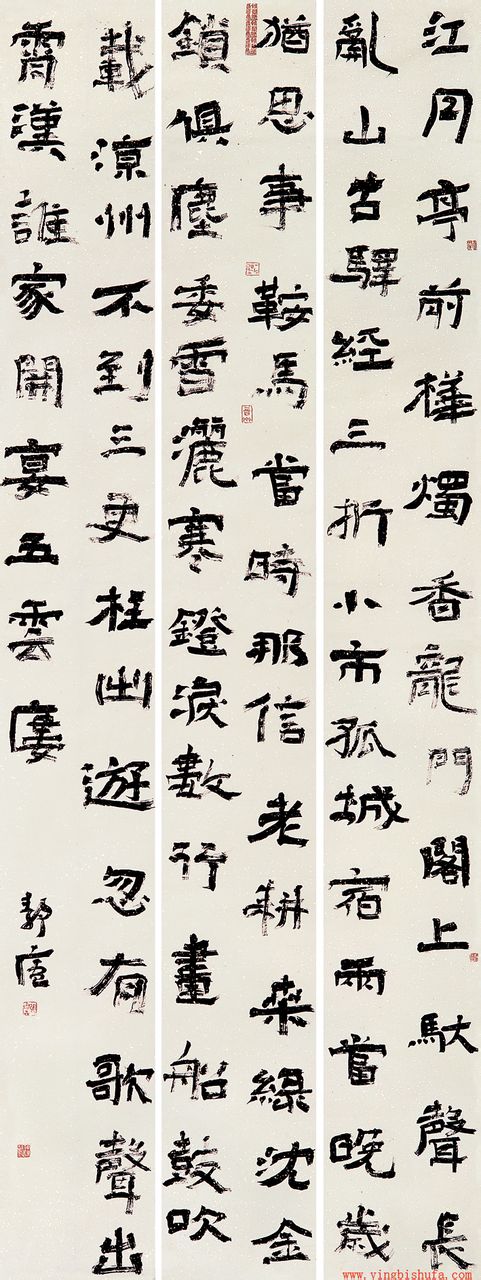 江月亭前樺燭香龍門閣上馱聲長
亂山古驛經三折小市孤城宿兩當晚歲
猶思事鞍馬當時那信老耕桑綠沈金
鎖俱塵委雪灑寒鐙淚數行畫船鼓吹
載涼州不到三更枉出遊忽有歌聲出
霄漢誰家開宴五雲廔
www.yingbishufa.com